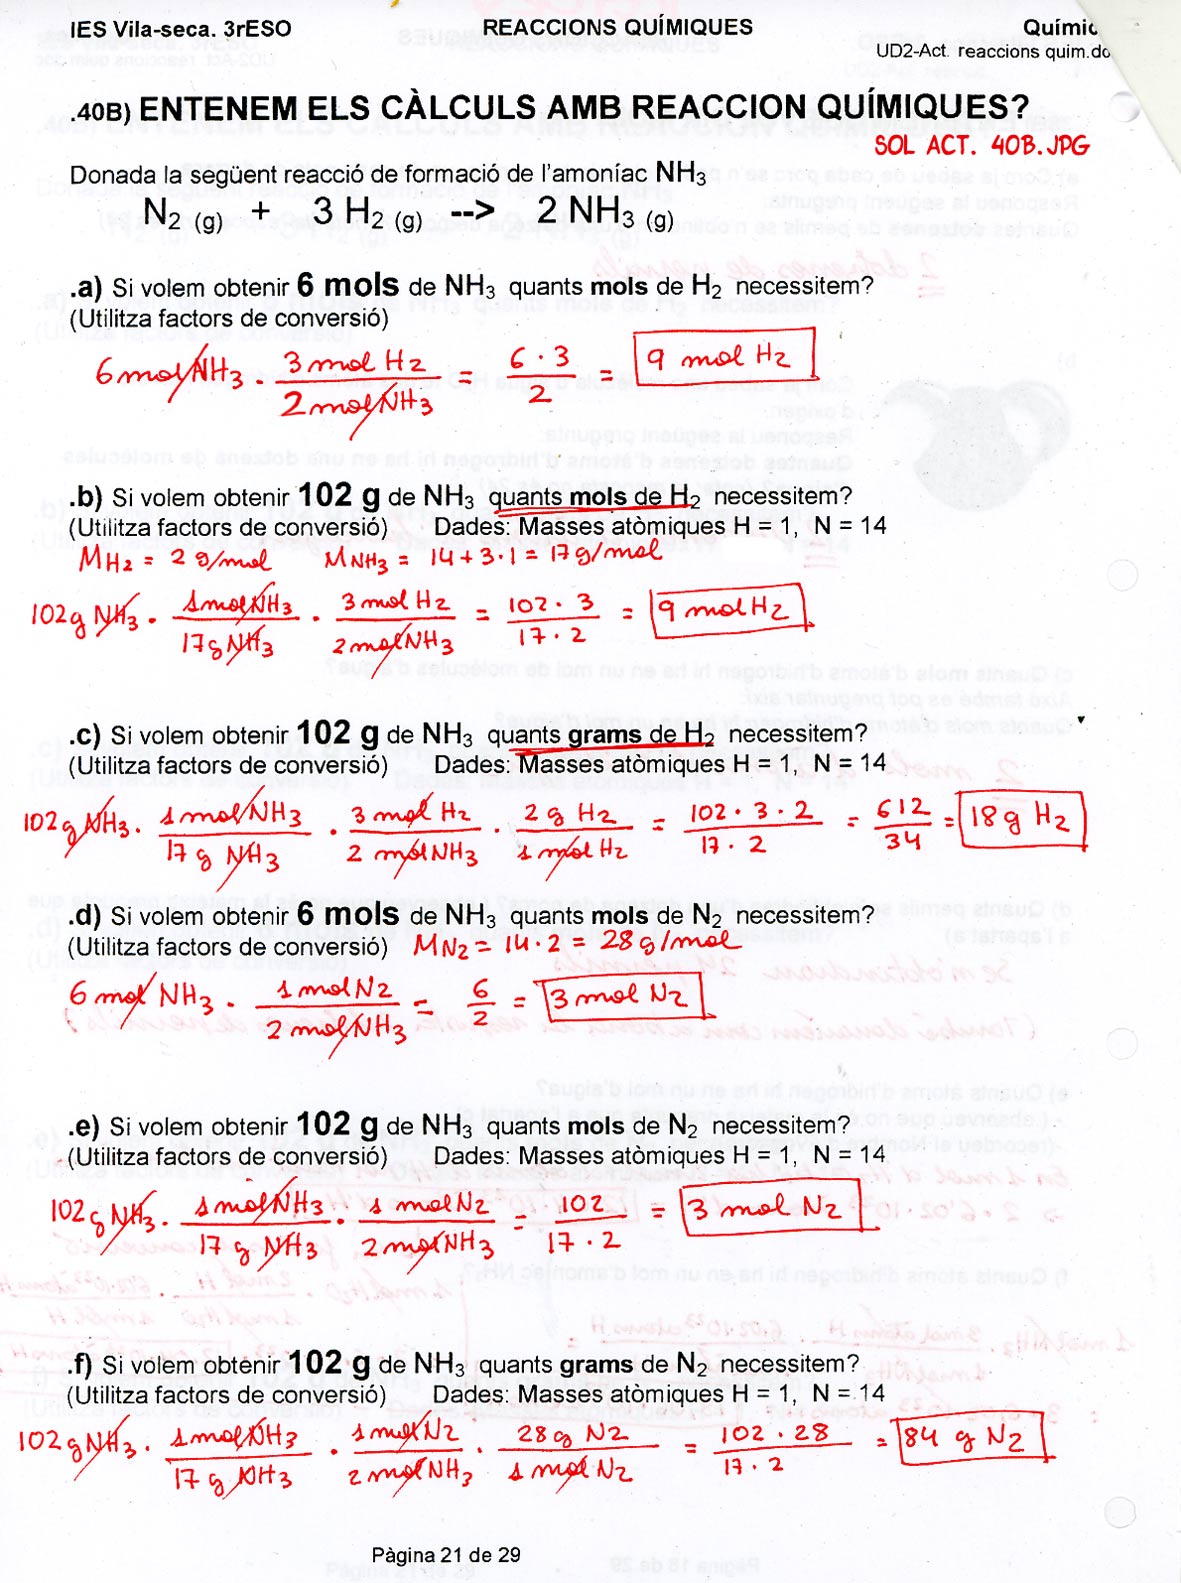 IES Vila-seca. 3rESO REACCIONS QUÍMIQUES Químic
UD2-Act. reaccions quim.do
.40B) ENTENEM ELS CÀLCULS AMB REACCION QUÍMIQUES?
SOL ACT. 40B.JPG
Donada la següent reacció de formació de l'amoníac NH3
N2 (g) + 3 H2 (g) --> 2 NH3 (g)
.a) Si volem obtenir 6 mols de NH3 quants mols de H2 necessitem?
(Utilitza factors de conversió)
6 mol NH3 · 3 mol H2 / 2 mol NH3 = 6 · 3 / 2 = 9 mol H2
.b) Si volem obtenir 102 g de NH3 quants mols de H2 necessitem?
(Utilitza factors de conversió) Dades: Masses atòmiques H = 1, N = 14
MH2 = 2 g/mol MNH3 = 14 + 3 · 1 = 17 g/mol
102 g NH3 · 1 mol NH3 / 17 g NH3 · 3 mol H2 / 2 mol NH3 = 102 · 3 / 17 · 2 = 9 mol H2
.c) Si volem obtenir 102 g de NH3 quants grams de H2 necessitem?
(Utilitza factors de conversió) Dades: Masses atòmiques H = 1, N = 14
102 g NH3 · 1 mol NH3 / 17 g NH3 · 3 mol H2 / 2 mol NH3 · 2 g H2 / 1 mol H2 = 102 · 3 · 2 / 17 · 2 = 612 / 34 = 18 g H2
.d) Si volem obtenir 6 mols de NH3 quants mols de N2 necessitem?
(Utilitza factors de conversió) MN2 = 14 · 2 = 28 g/mol
6 mol NH3 · 1 mol N2 / 2 mol NH3 = 6 / 2 = 3 mol N2
.e) Si volem obtenir 102 g de NH3 quants mols de N2 necessitem?
(Utilitza factors de conversió) Dades: Masses atòmiques H = 1, N = 14
102 g NH3 · 1 mol NH3 / 17 g NH3 · 1 mol N2 / 2 mol NH3 = 102 / 17 · 2 = 3 mol N2
.f) Si volem obtenir 102 g de NH3 quants grams de N2 necessitem?
(Utilitza factors de conversió) Dades: Masses atòmiques H = 1, N = 14
102 g NH3 · 1 mol NH3 / 17 g NH3 · 1 mol N2 / 2 mol NH3 · 28 g N2 / 1 mol N2 = 102 · 28 / 17 · 2 = 84 g N2
Pàgina 21 de 29